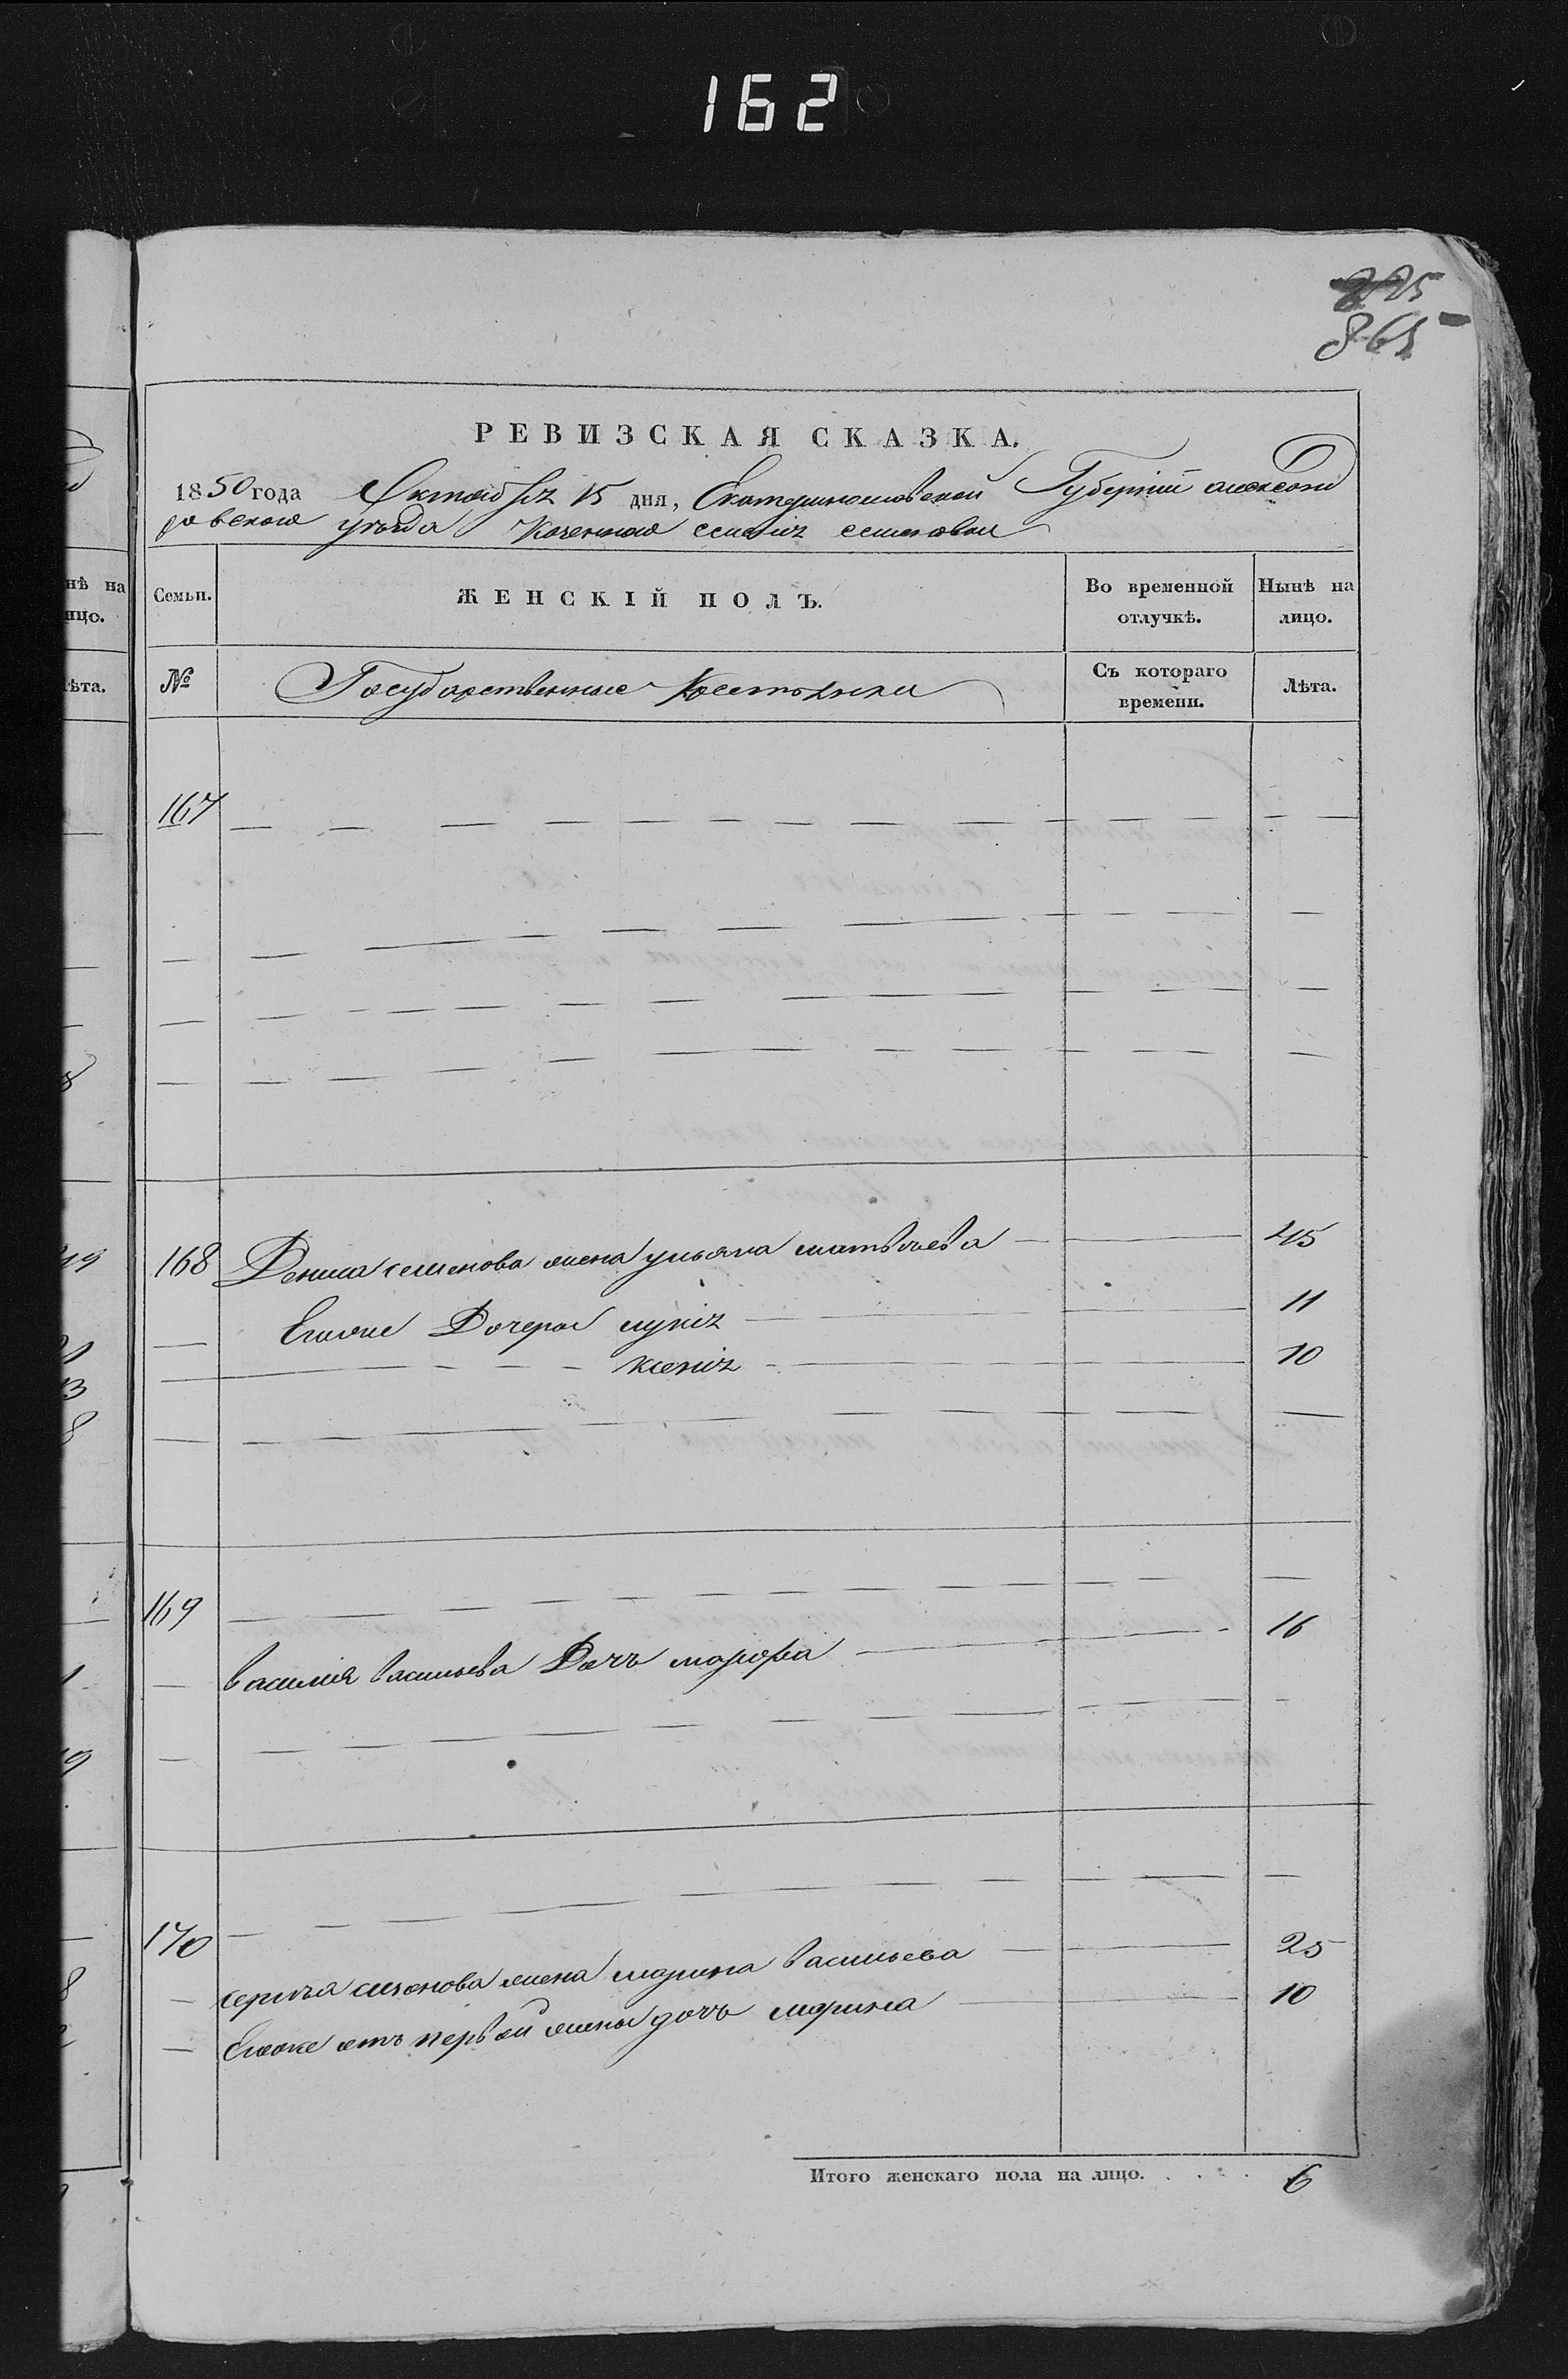 162
225
865
РЕВИЗСКАЯ СКАЗКА.
1850 года Октября 15 дня, Екатеринославской Губернiи александ
ровскаго уѣзда казеннаго селенiя семеновки
Семьи. ЖЕНСКІЙ ПОЛЪ. Во временной отлучкѣ. Нынѣ на лицо.
№ Государственные Крестьяне Съ котораго времени. Лѣта.
167
168 Дениса семенова жена ульяна матвѣева 45
Егоже Дочери лукiя 11
ксенiя 10
169
василiя васильева Дочь марфа 16
170
сергѣя семенова жена марина васильева 25
Егоже отъ первой жены дочь марина 10
Итого женскаго пола на лицо. . . . . 6
нѣ на
ицо.
ѣта.